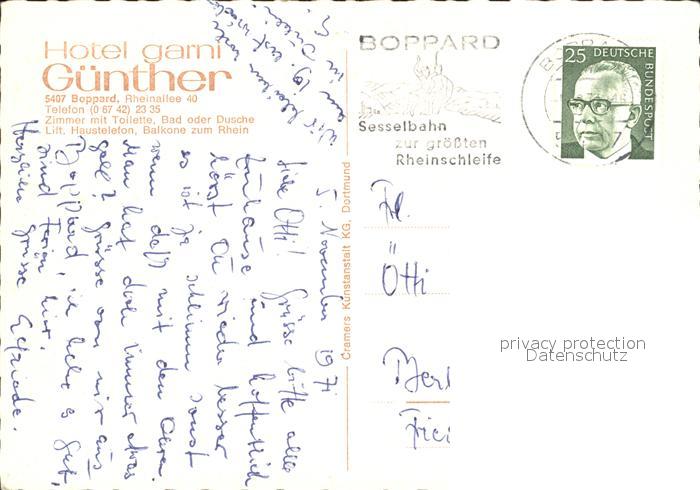 Hotel garni
Günther
5407 Boppard, Rheinallee 40
Telefon (0 67 42) 23 35
Zimmer mit Toilette, Bad oder Dusche
Lift, Haustelefon, Balkone zum Rhein
BOPPARD
Sesselbahn
zur größten
Rheinschleife
25 DEUTSCHE
BUNDESPOST
Cramers Kunstanstalt KG, Dortmund
5. November 1971
Liebe Ötti! Grüsse bitte alle
zuhause und hoffentlich
hörst Du wieder besser
es ist ja schlimm sonst
wenn daß mit den Ohren.
Man hat doch immer etwas
gell? Grüsse von mir aus
Boppard, ich habe es gut,
sind Ferien hier.
Herzliche Grüsse
Frl.
Ötti
privacy protection
Datenschutz